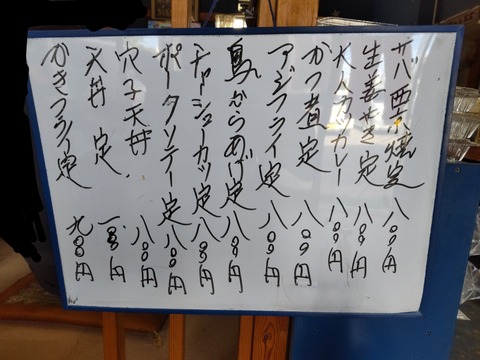 サバ西京焼定 八〇〇円
生姜やき定 八〇〇円
大人カツカレー 八〇〇円
かつ煮定 八〇〇円
アジフライ定 八〇〇円
鳥からあげ定 八〇〇円
チャーシューカツ定 八〇〇円
ポークソテー定 八〇〇円
穴子天丼 八〇〇円
天丼 定
かきフライ定 九〇〇円